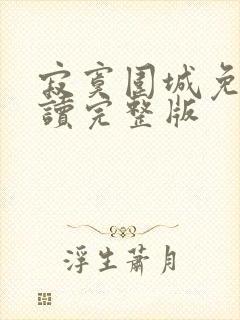 寂寞圍城免
讀完整版
浮生蕭月